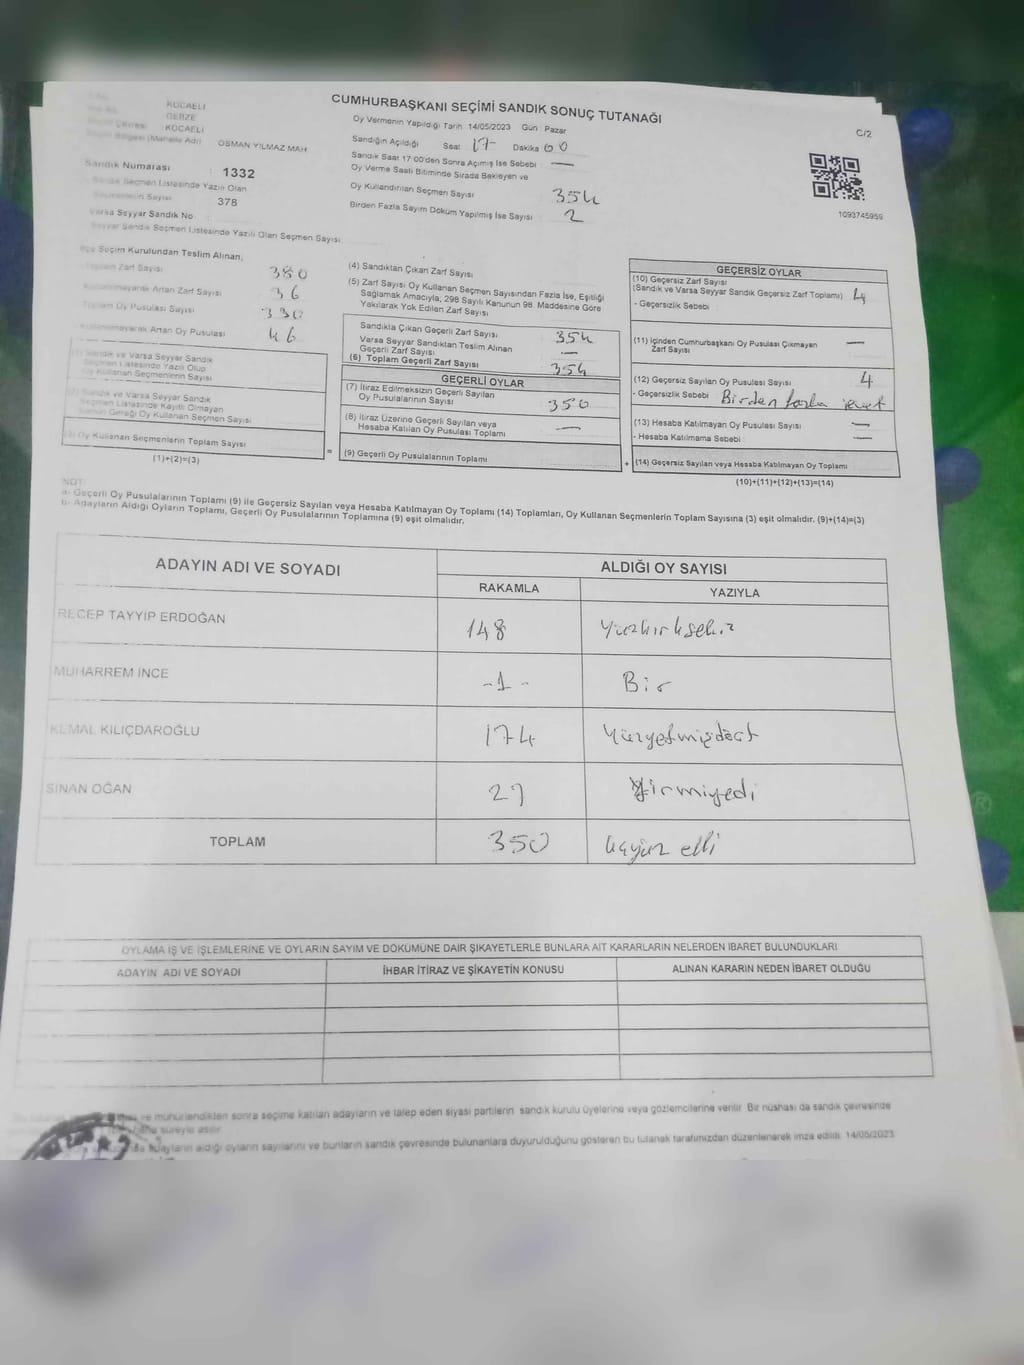 CUMHURBAŞKANI SEÇİMİ SANDIK SONUÇ TUTANAĞI
C/2
KOCAELİ
GEBZE
KOCAELİ
Seçim Bölgesi (Mahalle Adı) OSMAN YILMAZ MAH
Sandık Numarası : 1332
Sandık Seçmen Listesinde Yazılı Olan
Seçmenlerin Sayısı 378
Varsa Seyyar Sandık No
Seyyar Sandık Seçmen Listesinde Yazılı Olan Seçmen Sayısı
Oy Vermenin Yapıldığı Tarih 14/05/2023 Gün Pazar
Sandığın Açıldığı Saat 17 Dakika 00
Sandık Saat 17:00'den Sonra Açılmış İse Sebebi : —
Oy Verme Saati Bitiminde Sırada Bekleyen ve
Oy Kullandırılan Seçmen Sayısı 354
Birden Fazla Sayım Döküm Yapılmış İse Sayısı 2
1093745959
İlçe Seçim Kurulundan Teslim Alınan,
Toplam Zarf Sayısı 380
Kullanılmayarak Artan Zarf Sayısı 36
Toplam Oy Pusulası Sayısı 330
Kullanılmayarak Artan Oy Pusulası 46
(1) Sandık ve Varsa Seyyar Sandık
Seçmen Listesinde Yazılı Olup
Oy Kullanan Seçmenlerin Sayısı
(2) Sandık ve Varsa Seyyar Sandık
Seçmen Listesinde Kayıtlı Olmayan
Kanun Gereği Oy Kullanan Seçmen Sayısı
(3) Oy Kullanan Seçmenlerin Toplam Sayısı
(1)+(2)=(3)
(4) Sandıktan Çıkan Zarf Sayısı
(5) Zarf Sayısı Oy Kullanan Seçmen Sayısından Fazla İse, Eşitliği
Sağlamak Amacıyla, 298 Sayılı Kanunun 98. Maddesine Göre
Yakılarak Yok Edilen Zarf Sayısı
Sandıkta Çıkan Geçerli Zarf Sayısı 354
Varsa Seyyar Sandıktan Teslim Alınan
Geçerli Zarf Sayısı —
(6) Toplam Geçerli Zarf Sayısı 354
GEÇERLİ OYLAR
(7) İtiraz Edilmeksizin Geçerli Sayılan
Oy Pusulalarının Sayısı 350
(8) İtiraz Üzerine Geçerli Sayılan veya
Hesaba Katılan Oy Pusulası Toplamı —
= (9) Geçerli Oy Pusulalarının Toplamı
GEÇERSİZ OYLAR
(10) Geçersiz Zarf Sayısı
(Sandık ve Varsa Seyyar Sandık Geçersiz Zarf Toplamı) 4
- Geçersizlik Sebebi
(11) İçinden Cumhurbaşkanı Oy Pusulası Çıkmayan
Zarf Sayısı —
(12) Geçersiz Sayılan Oy Pusulası Sayısı 4
- Geçersizlik Sebebi : Birden fazla
(13) Hesaba Katılmayan Oy Pusulası Sayısı —
- Hesaba Katılmama Sebebi : —
+ (14) Geçersiz Sayılan veya Hesaba Katılmayan Oy Toplamı
(10)+(11)+(12)+(13)=(14)
NOT:
a- Geçerli Oy Pusulalarının Toplamı (9) ile Geçersiz Sayılan veya Hesaba Katılmayan Oy Toplamı (14) Toplamları, Oy Kullanan Seçmenlerin Toplam Sayısına (3) eşit olmalıdır. (9)+(14)=(3)
b- Adayların Aldığı Oyların Toplamı, Geçerli Oy Pusulalarının Toplamına (9) eşit olmalıdır.
ADAYIN ADI VE SOYADI
ALDIĞI OY SAYISI
RAKAMLA YAZIYLA
RECEP TAYYİP ERDOĞAN 148 Yüzkırksekiz
MUHARREM İNCE -1- Bir
KEMAL KILIÇDAROĞLU 174 Yüzyetmişdört
SİNAN OĞAN 27 Yirmiyedi
TOPLAM 350 üçyüz elli
OYLAMA İŞ VE İŞLEMLERİNE VE OYLARIN SAYIM VE DÖKÜMÜNE DAİR ŞİKAYETLERLE BUNLARA AİT KARARLARIN NELERDEN İBARET BULUNDUKLARI
ADAYIN ADI VE SOYADI İHBAR İTİRAZ VE ŞİKAYETİN KONUSU ALINAN KARARIN NEDEN İBARET OLDUĞU
ve mühürlendikten sonra seçime katılan adayların ve talep eden siyasi partilerin sandık kurulu üyelerine veya gözlemcilerine verilir. Bir nüshası da sandık çevresinde
süreyle asılır.
adayların aldığı oyların sayılarını ve bunların sandık çevresinde bulunanlara duyurulduğunu gösteren bu tutanak tarafımızdan düzenlenerek imza edildi. 14/05/2023